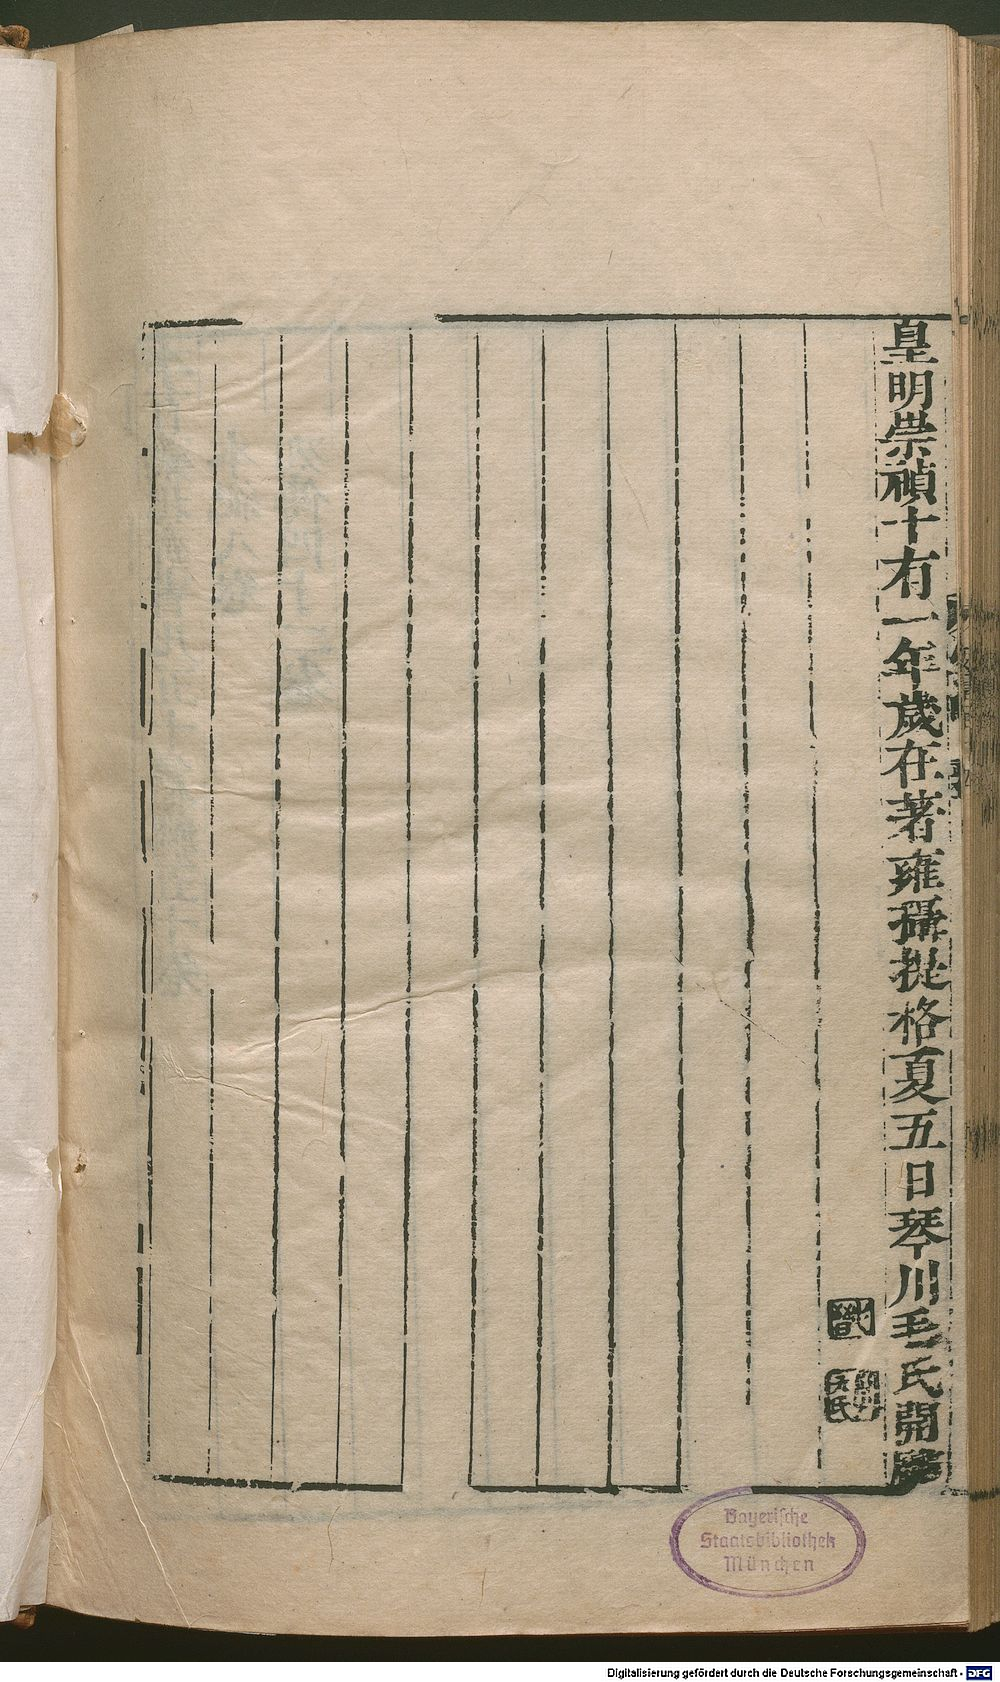 皇明崇禎十有一年歲在著雍攝提格夏五日琴川毛氏開雕
Bayerische
Staatsbibliothek
München
Digitalisierung gefördert durch die Deutsche Forschungsgemeinschaft - DFG